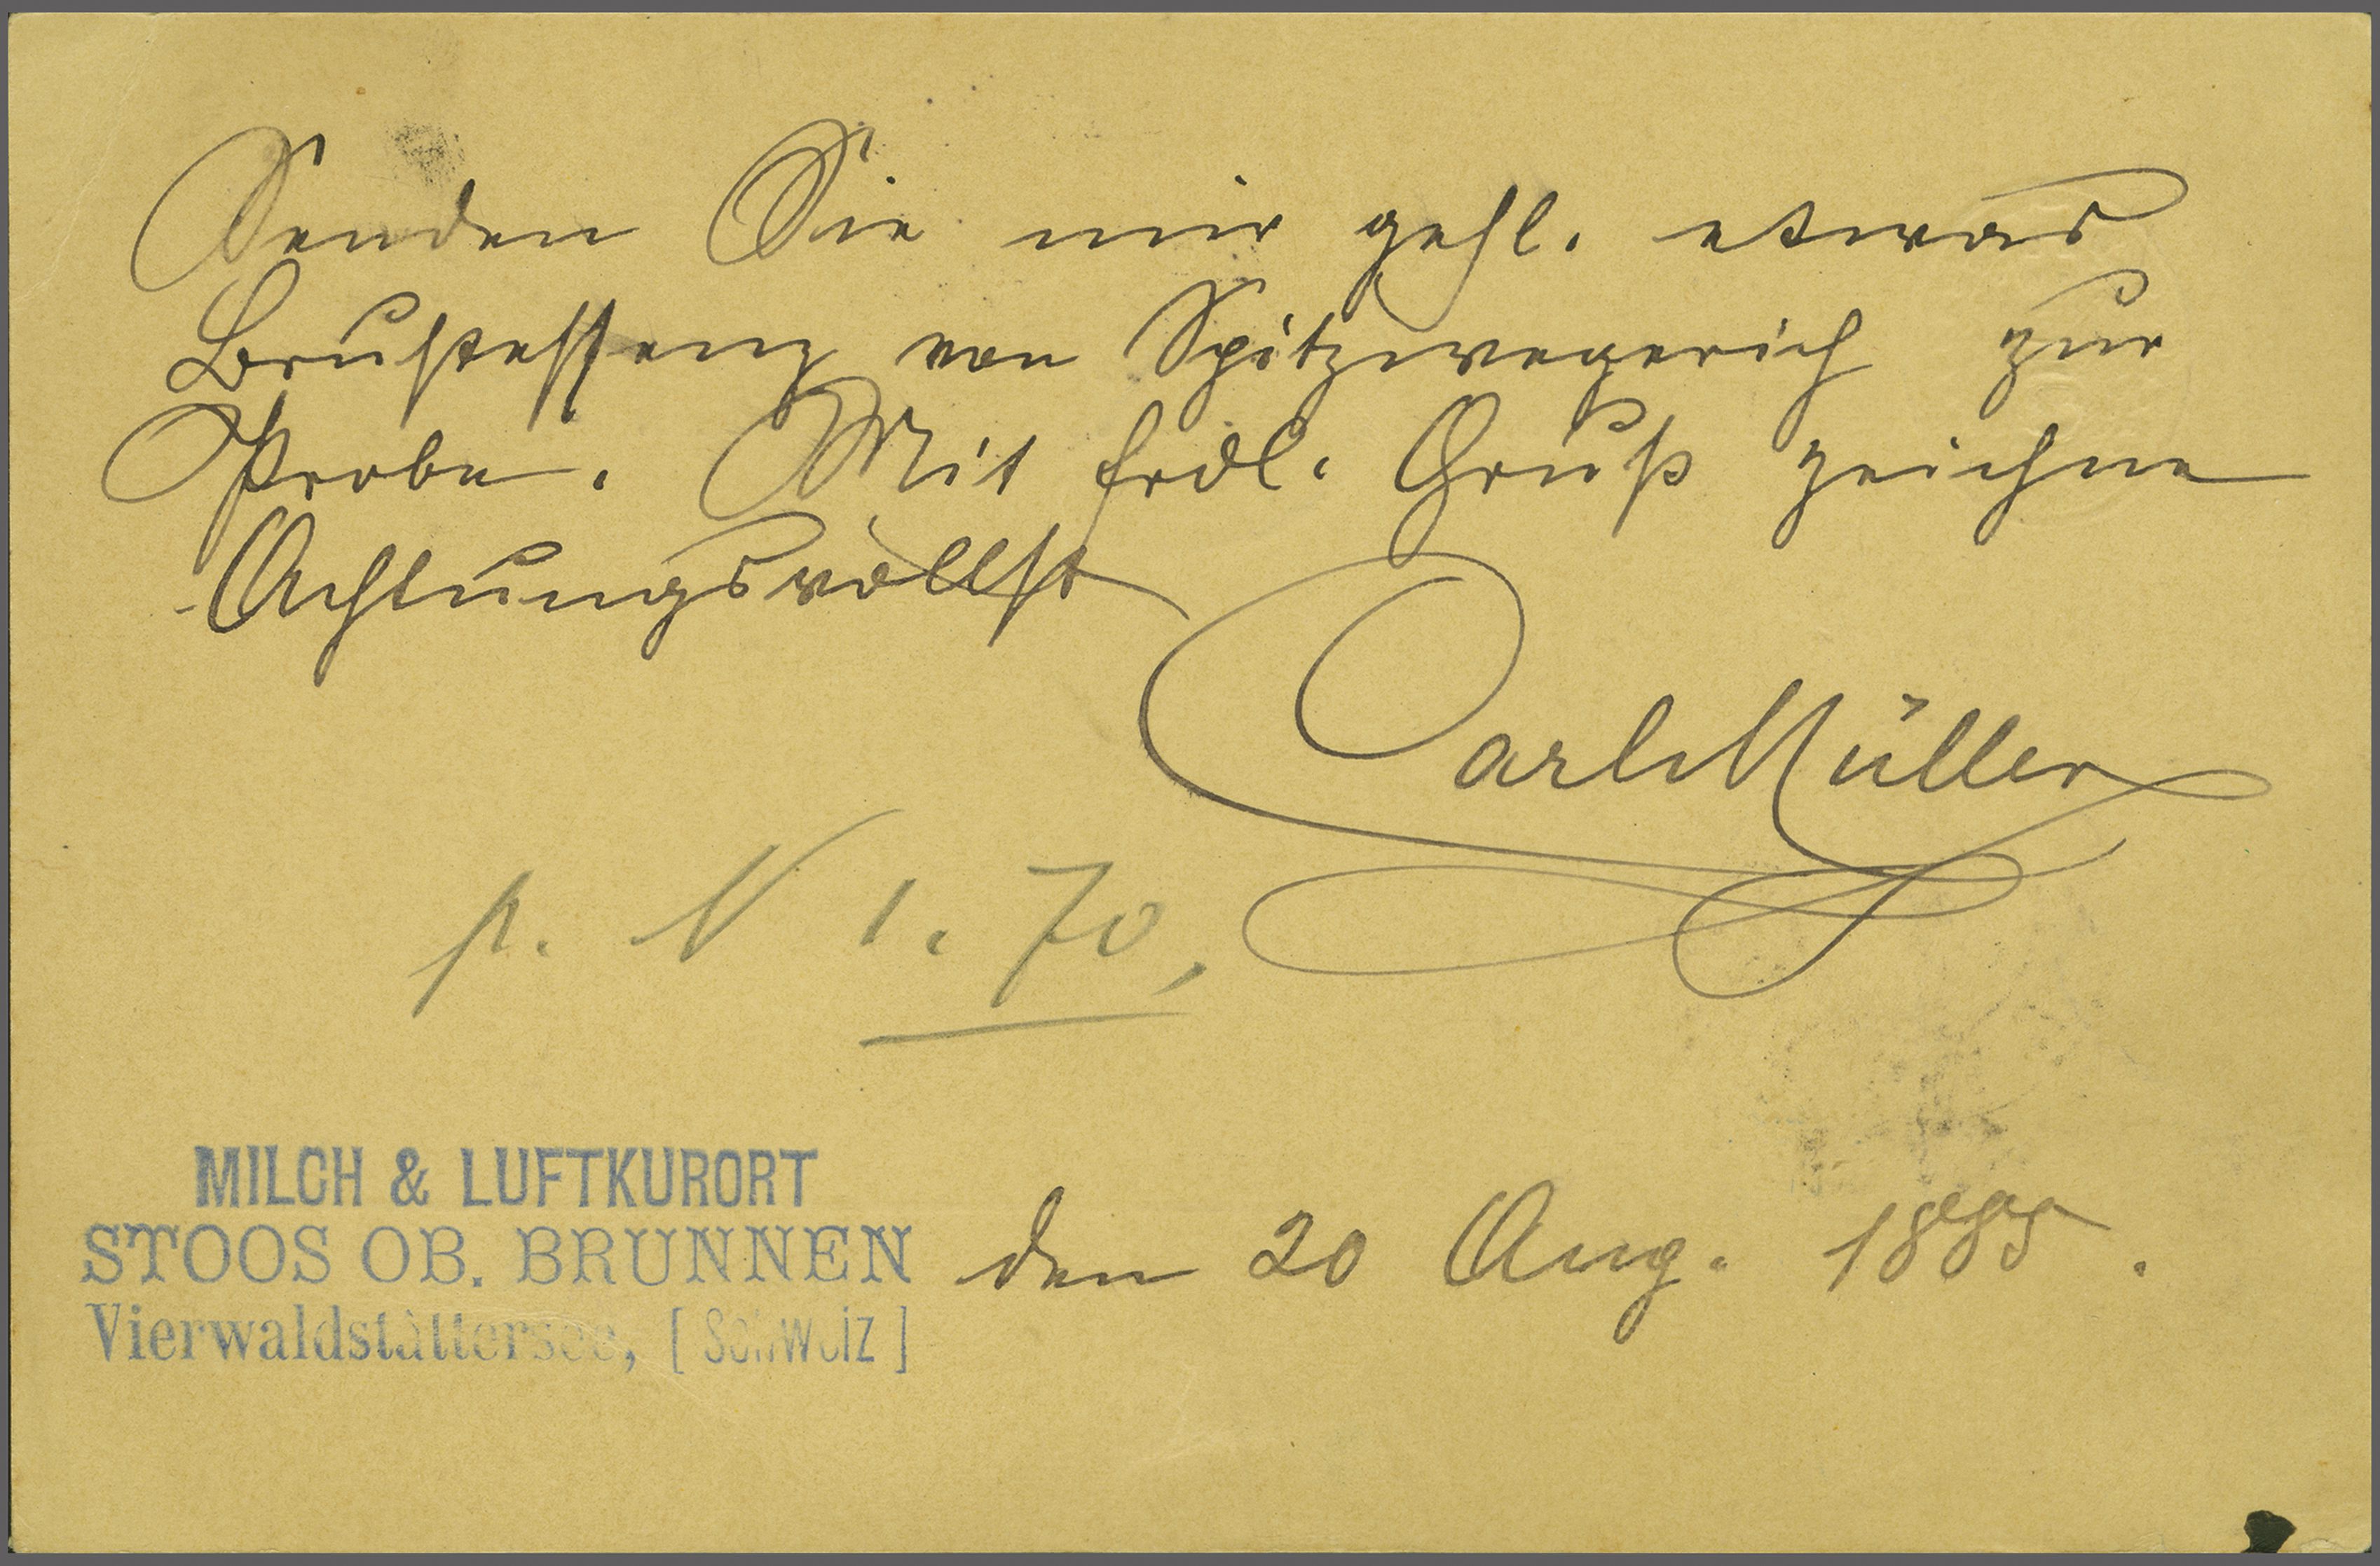 Senden Sie mir gefl. etwas
Brustessenz von Spitzwegerich zur
Probe. Mit frdl. Gruß zeichne
Achtungsvollst
Carl Müller
p. N 1.70,
MILCH & LUFTKURORT
STOOS OB. BRUNNEN
den 20 Aug. 1885.
Vierwaldstättersee, [Schweiz]